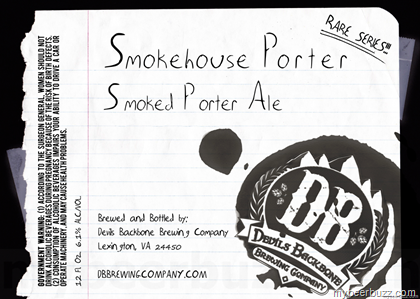 Smokehouse Porter
Smoked Porter Ale
RARE SERIES
Brewed and Bottled by:
Devils Backbone Brewing Company
Lexington, VA 24450
DBBREWINGCOMPANY.COM
GOVERNMENT WARNING: (1) ACCORDING TO THE SURGEON GENERAL, WOMEN SHOULD NOT
DRINK ALCOHOLIC BEVERAGES DURING PREGNANCY BECAUSE OF THE RISK OF BIRTH DEFECTS.
(2) CONSUMPTION OF ALCOHOLIC BEVERAGES IMPAIRS YOUR ABILITY TO DRIVE A CAR OR
OPERATE MACHINERY, AND MAY CAUSE HEALTH PROBLEMS.
12 FL OZ 6.2% ALC/VOL
DB
DEVILS BACKBONE
BREWING COMPANY
mybeerbuzz.com